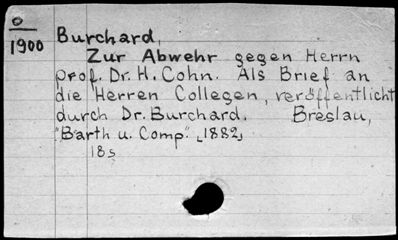 O
1900
Burchard,
Zur Abwehr gegen Herrn
prof. Dr. H. Cohn. Als Brief an
die Herren Collegen, veröffentlicht
durch Dr. Burchard. Breslau,
"Barth u. Comp." [1882]
18s